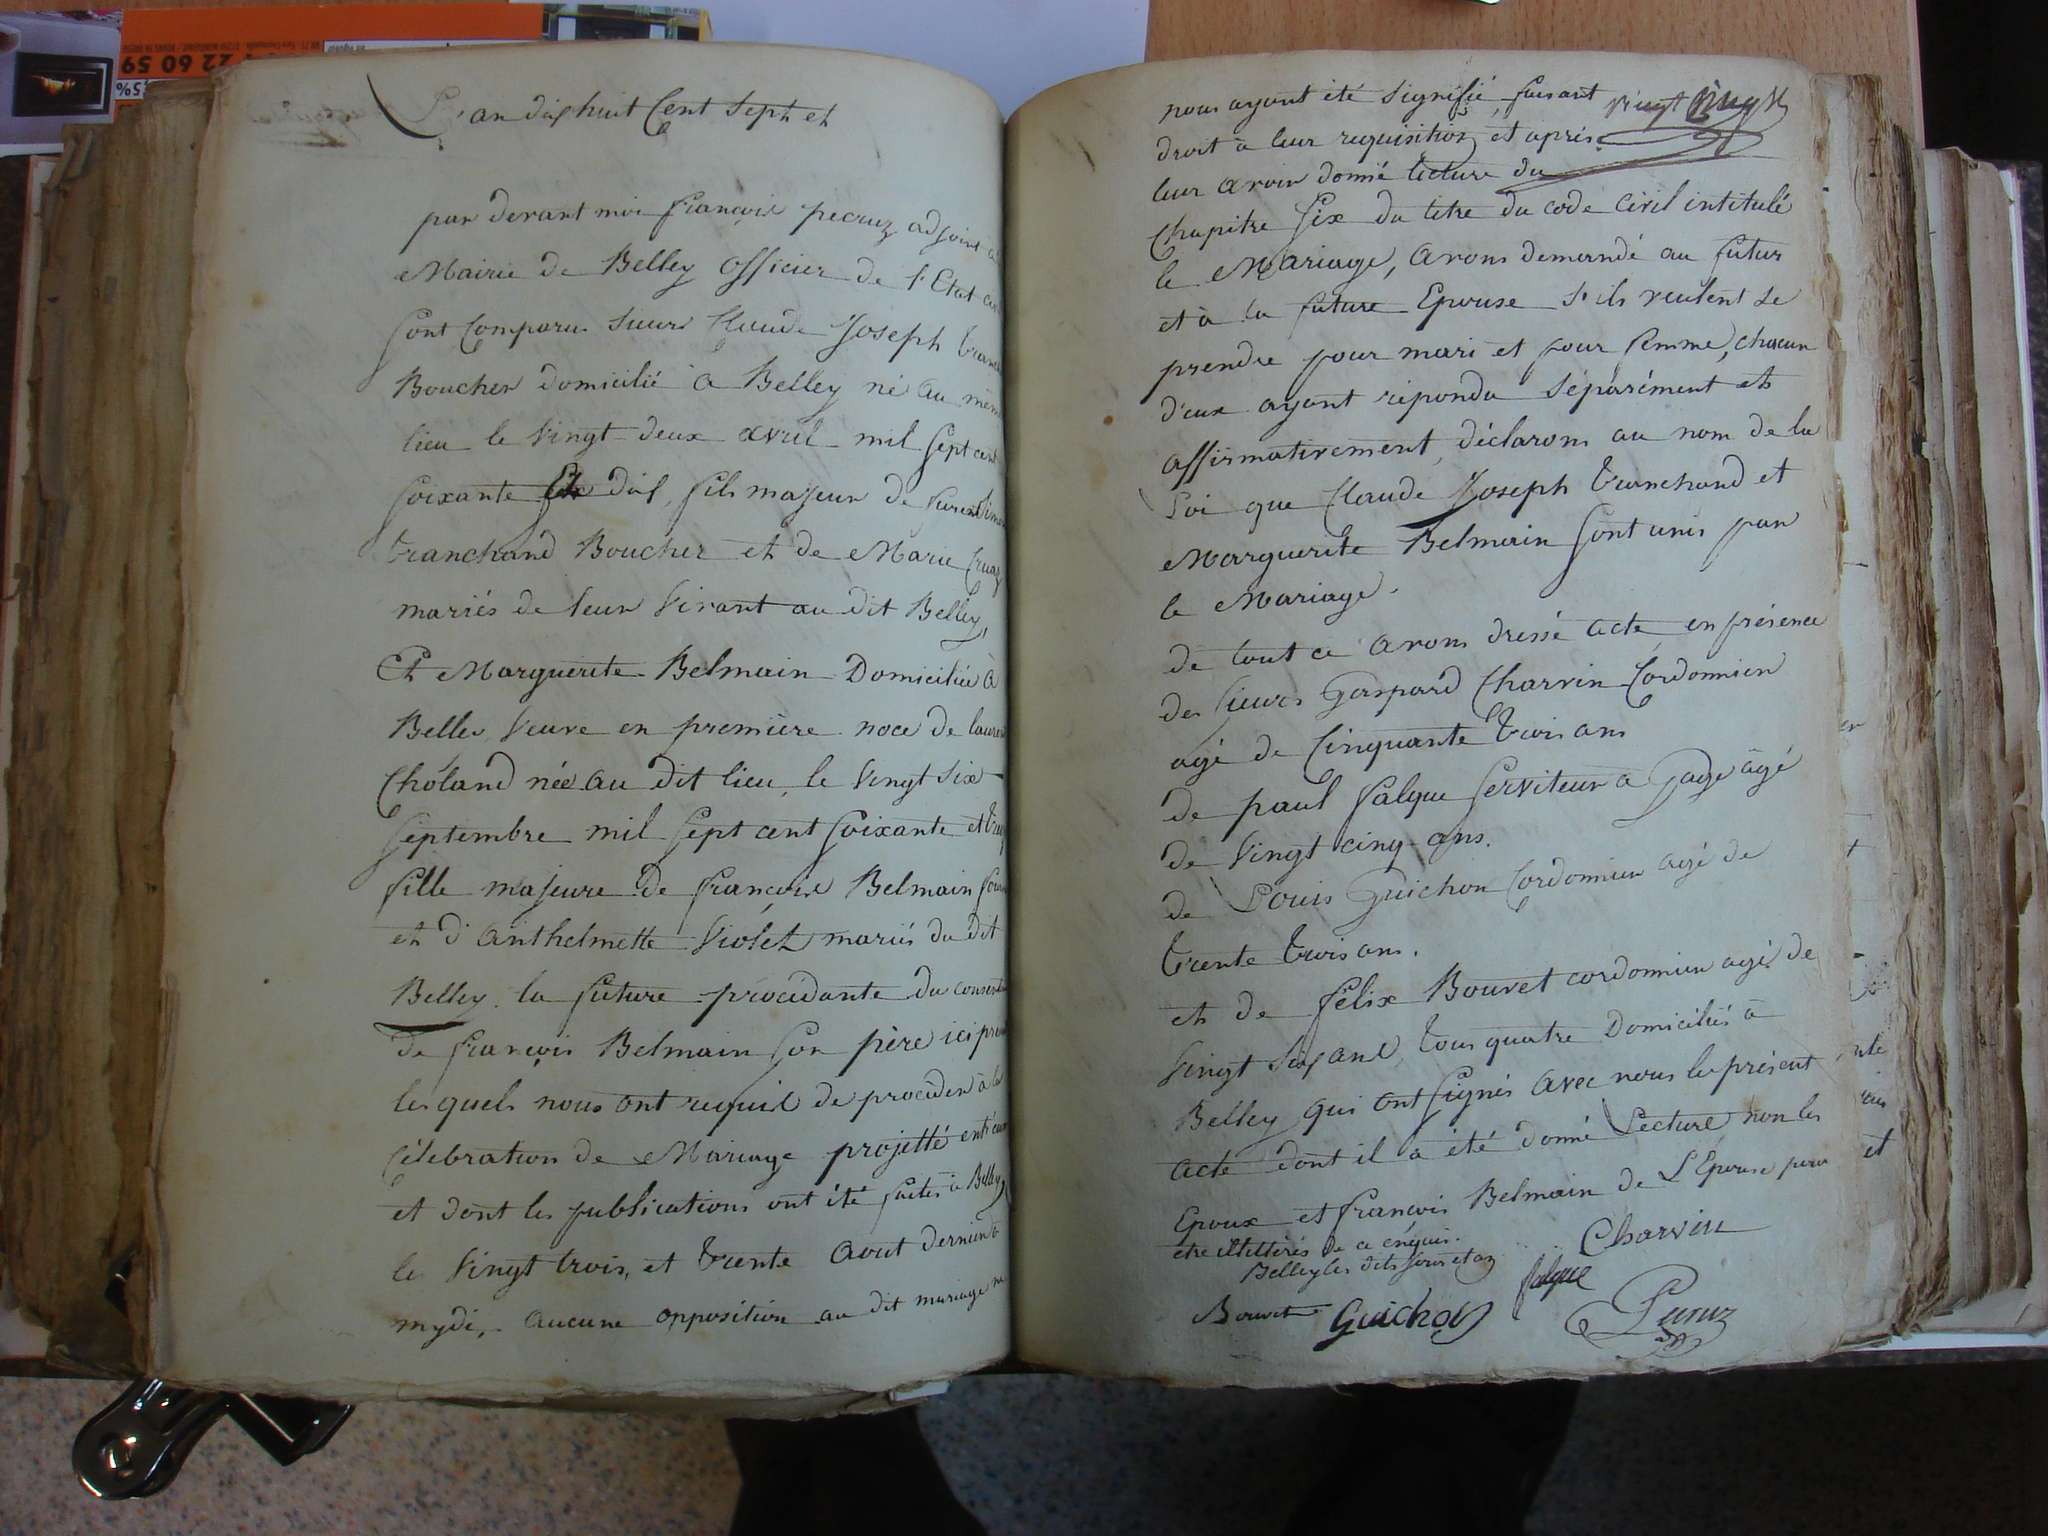 22 60 59
5%
L'an dix huit Cent Sept et
par devant moi françois pecruz adjoint
Mairie de Belley officier de l'Etat
Sont Comparus Sieurs Claude Joseph
Boucher domicilié à Belley né au mêm
lieu le Vingt deux avril mil Sept cent
Soixante dix, fils majeur de
tranchand Boucher et de Marie
mariés de leur Vivant au dit Belley,
Et Marguerite Belmain Domiciliée à
Belley Veuve en première noce de
Choland née au dit lieu, le Vingt Six
Septembre mil Sept cent Soixante et
fille majeure de françois Belmain
et d'anthelmette Violet mariés du dit
Belley. la future procédante du
de françois Belmain Son père ici
les quels nous ont requis de procéder à la
Célébration de Mariage projetté
et dont les publications ont été faites à Belley
les Vingt trois, et trente Aout dernier à
mydi, aucune opposition au dit mariage ne
nous ayant été signifié, faisant
droit à leur requisition et après
leur avoir donné lecture du
Chapitre Six du titre du code Civil intitulé
le Mariage, avons demandé au futur
et à la future Epouse s'ils veulent se
prendre pour mari et pour femme, chacun
d'eux ayant répondu Séparément et
affirmativement, déclarons au nom de la
Loi que Claude Joseph tranchand et
Marguerite Belmain Sont unis par
le Mariage.
de tout ce avons dressé acte en présence
des Sieurs Gaspard Charvin Cordonnier
agé de Cinquante trois ans
de paul falque Serviteur à Gage âgé
de Vingt cinq ans.
de Louis Guichon Cordonnier agé de
trente trois ans.
et de félix Bouvet cordonnier agé de
Vingt Six ans, tous quatre Domiciliés à
Belley qui ont Signés avec nous le présent
acte dont il a été donné Lecture non les
Epoux et françois Belmain de L'Epouse pour
etre illittérés de ce enquis.
Belley les dits jour et an
Charvin
falque
Bouvet Guichon
Pecruz